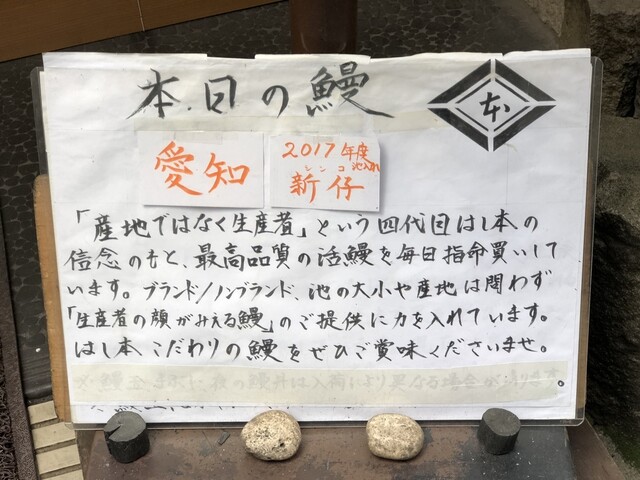 本日の鰻
本
愛知
2017年度
池入れ
シンコ
新仔
「産地ではなく生産者」という四代目はし本の
信念のもと、最高品質の活鰻を毎日指命買いして
います。ブランド/ノンブランド、池の大小や産地は問わず
「生産者の顔がみえる鰻」のご提供に力を入れています。
はし本こだわりの鰻をぜひご賞味くださいませ。